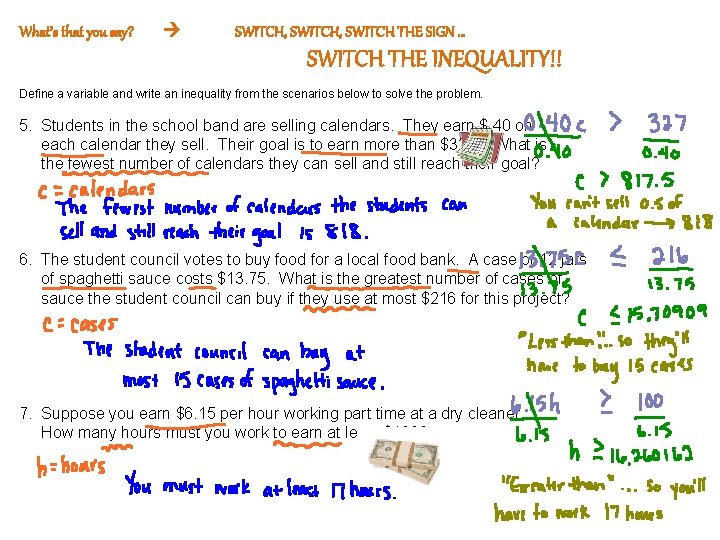 What's that you say? → SWITCH, SWITCH, SWITCH THE SIGN ...
SWITCH THE INEQUALITY!!
Define a variable and write an inequality from the scenarios below to solve the problem.
5. Students in the school band are selling calendars. They earn $.40 on
each calendar they sell. Their goal is to earn more than $3 What is
the fewest number of calendars they can sell and still reach their goal?
0.40c > 327
0.40 0.40
c > 817.5
c = calendars
The fewest number of calendars the students can
sell and still reach their goal is 818.
You can't sell 0.5 of
a calendar → 818
6. The student council votes to buy food for a local food bank. A case of 12 jars
of spaghetti sauce costs $13.75. What is the greatest number of cases of
sauce the student council can buy if they use at most $216 for this project?
13.75c ≤ 216
13.75 13.75
c ≤ 15.70909
c = cases
The student council can buy at
most 15 cases of spaghetti sauce.
"Less than"... so they'll
have to buy 15 cases
7. Suppose you earn $6.15 per hour working part time at a dry cleaner.
How many hours must you work to earn at le
6.15h ≥ 100
6.15 6.15
h ≥ 16.260162
h = hours
You must work at least 17 hours.
"Greater than"... so you'll
have to work 17 hours